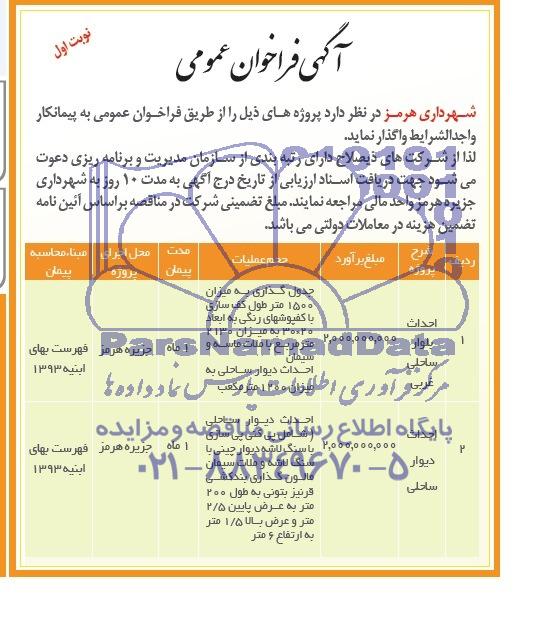 نوبت اول
آگهی فراخوان عمومی
شهرداری هرمز در نظر دارد پروژه های ذیل را از طریق فراخوان عمومی به پیمانکار
واجدالشرایط واگذار نماید.
لذا از شرکت های ذیصلاح دارای رتبه بندی از سازمان مدیریت و برنامه ریزی دعوت
می شود جهت دریافت اسناد ارزیابی از تاریخ درج آگهی به مدت ۱۰ روز به شهرداری
جزیره هرمز واحد مالی مراجعه نمایند. مبلغ تضمینی شرکت در مناقصه براساس آئین نامه
تضمین هزینه در معاملات دولتی می باشد.
ردیف
شرح پروژه
مبلغ برآورد
حجم عملیات
مدت پیمان
محل اجرای پروژه
مبناء محاسبه پیمان
۱
احداث
بلوار
ساحلی
غربی
۲,۰۰۰,۰۰۰,۰۰۰
جدول گذاری به میزان
۱۵۰۰ متر طول کف سازی
با کفپوشهای رنگی به ابعاد
۲۰×۳۰ به میزان ۲۱۳۰
مترمربع با ملات ماسه و
سیمان
احداث دیوار ساحلی به
میزان ۱۲۰۰ متر مکعب
۱ ماه
جزیره هرمز
فهرست بهای
ابنیه ۱۳۹۳
۲
احداث
دیوار
ساحلی
۲,۰۰۰,۰۰۰,۰۰۰
احداث دیوار ساحلی
(شامل پی کنی پی سازی
با سنگ لاشه دیوار چینی با
سنگ لاشه و ملات سیمان
ماتون گذاری بندکشی
قرنیز بتونی به طول ۲۰۰
متر به عرض پایین ۲/۵
متر و عرض بالا ۱/۵ متر
به ارتفاع ۶ متر
۱ ماه
جزیره هرمز
فهرست بهای
ابنیه ۱۳۹۳
ParsNamadData
مرکز فرآوری اطلاعات پارس نماد داده ها
پایگاه اطلاع رسانی مناقصه و مزایده
۰۲۱-۸۸۳۴۹۶۷۰-۵